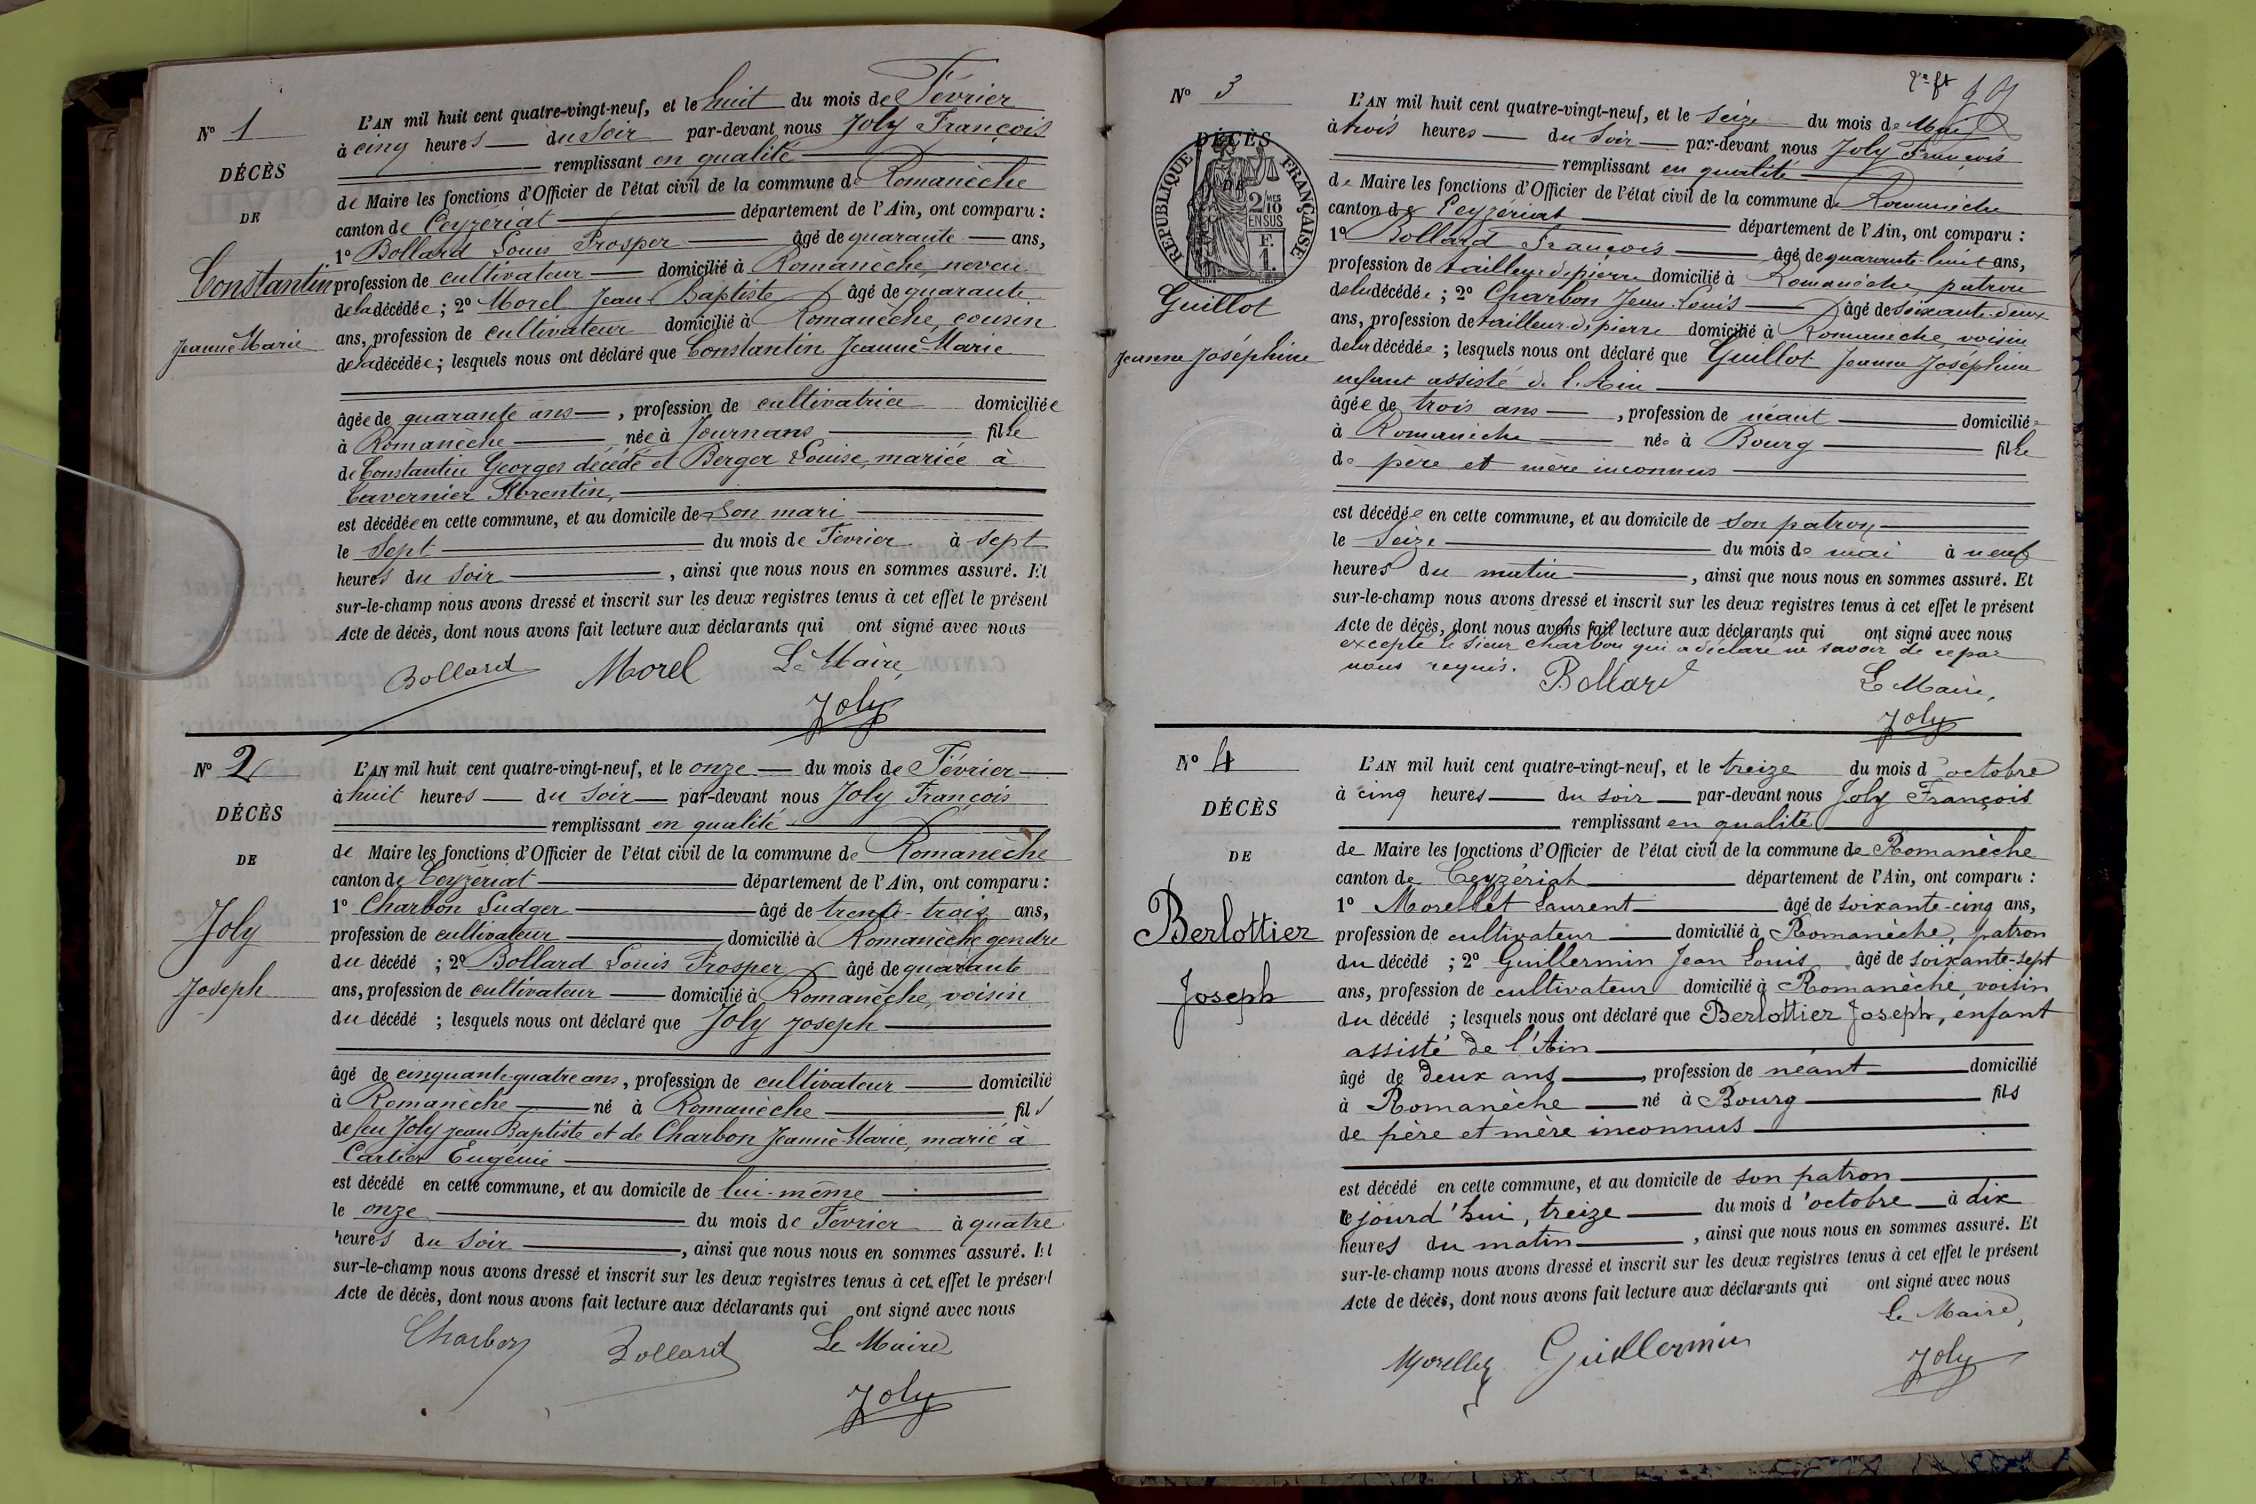 N° 1
DÉCÈS
DE
Constantin
Jeanne Marie
L'AN mil huit cent quatre-vingt-neuf, et le huit du mois de Février
à cinq heures du soir par-devant nous Joly François
remplissant en qualité
de Maire les fonctions d'Officier de l'état civil de la commune de Romanèche
canton de Ceyzériat département de l'Ain, ont comparu :
1° Bollard Louis Prosper âgé de quarante ans,
profession de cultivateur domicilié à Romanèche, neveu
de la décédée ; 2° Morel Jean Baptiste âgé de quarante
ans, profession de cultivateur domicilié à Romanèche, cousin
de la décédée ; lesquels nous ont déclaré que Constantin Jeanne Marie
âgée de quarante ans, profession de cultivatrice domiciliée
à Romanèche née à Journans fille
de Constantin Georges décédé et Berger Louise, mariée à
Tavernier Florentin,
est décédée en cette commune, et au domicile de son mari
le sept du mois de Février à sept
heures du soir, ainsi que nous nous en sommes assuré. Et
sur-le-champ nous avons dressé et inscrit sur les deux registres tenus à cet effet le présent
Acte de décès, dont nous avons fait lecture aux déclarants qui ont signé avec nous
Bollard Morel Le Maire,
Joly
N° 2
DÉCÈS
DE
Joly
Joseph
L'AN mil huit cent quatre-vingt-neuf, et le onze du mois de Février
à huit heures du soir par-devant nous Joly François
remplissant en qualité
de Maire les fonctions d'Officier de l'état civil de la commune de Romanèche
canton de Ceyzériat département de l'Ain, ont comparu :
1° Charbon Ludger âgé de trente-trois ans,
profession de cultivateur domicilié à Romanèche gendre
du décédé ; 2° Bollard Louis Prosper âgé de quarante
ans, profession de cultivateur domicilié à Romanèche, voisin
du décédé ; lesquels nous ont déclaré que Joly Joseph
âgé de cinquante-quatre ans, profession de cultivateur domicilié
à Romanèche né à Romanèche fils
de feu Joly Jean Baptiste et de Charbon Jeanne Marie, marié à
Cartier Eugénie
est décédé en cette commune, et au domicile de lui-même
le onze du mois de Février à quatre
heures du soir, ainsi que nous nous en sommes assuré. Et
sur-le-champ nous avons dressé et inscrit sur les deux registres tenus à cet effet le présent
Acte de décès, dont nous avons fait lecture aux déclarants qui ont signé avec nous
Charbon Bollard Le Maire
Joly
N° 3
DÉCÈS
DE
REPUBLIQUE FRANÇAISE
2/10 MES
EN SUS
F.
1.
Guillot
Jeanne Joséphine
L'AN mil huit cent quatre-vingt-neuf, et le seize du mois de Mai
à trois heures du soir par-devant nous Joly François
remplissant en qualité
de Maire les fonctions d'Officier de l'état civil de la commune de Romanèche
canton de Ceyzériat département de l'Ain, ont comparu :
1° Bollard François âgé de quarante-huit ans,
profession de tailleur de pierre domicilié à Romanèche patron
de la décédée ; 2° Charbon Jean Louis âgé de soixante-deux
ans, profession de tailleur de pierre domicilié à Romanèche, voisin
de la décédée ; lesquels nous ont déclaré que Guillot Jeanne Joséphine
enfant assisté de l'Ain
âgée de trois ans, profession de néant domiciliée
à Romanèche née à Bourg fille
de père et mère inconnus
est décédée en cette commune, et au domicile de son patron
le seize du mois de mai à neuf
heures du matin, ainsi que nous nous en sommes assuré. Et
sur-le-champ nous avons dressé et inscrit sur les deux registres tenus à cet effet le présent
Acte de décès, dont nous avons fait lecture aux déclarants qui ont signé avec nous
excepté le sieur Charbon qui a déclaré ne savoir de ce par
nous requis.
Bollard Le Maire,
Joly
N° 4
DÉCÈS
DE
Berlottier
Joseph
L'AN mil huit cent quatre-vingt-neuf, et le treize du mois d'octobre
à cinq heures du soir par-devant nous Joly François
remplissant en qualité
de Maire les fonctions d'Officier de l'état civil de la commune de Romanèche
canton de Ceyzériat département de l'Ain, ont comparu :
1° Morellet Laurent âgé de soixante-cinq ans,
profession de cultivateur domicilié à Romanèche, patron
du décédé ; 2° Guillermin Jean Louis âgé de soixante-sept
ans, profession de cultivateur domicilié à Romanèche, voisin
du décédé ; lesquels nous ont déclaré que Berlottier Joseph, enfant
assisté de l'Ain
âgé de deux ans, profession de néant domicilié
à Romanèche né à Bourg fils
de père et mère inconnus
est décédé en cette commune, et au domicile de son patron
ce jourd'hui, treize du mois d'octobre à dix
heures du matin, ainsi que nous nous en sommes assuré. Et
sur-le-champ nous avons dressé et inscrit sur les deux registres tenus à cet effet le présent
Acte de décès, dont nous avons fait lecture aux déclarants qui ont signé avec nous
Le Maire,
Morellet Guillermin
Joly